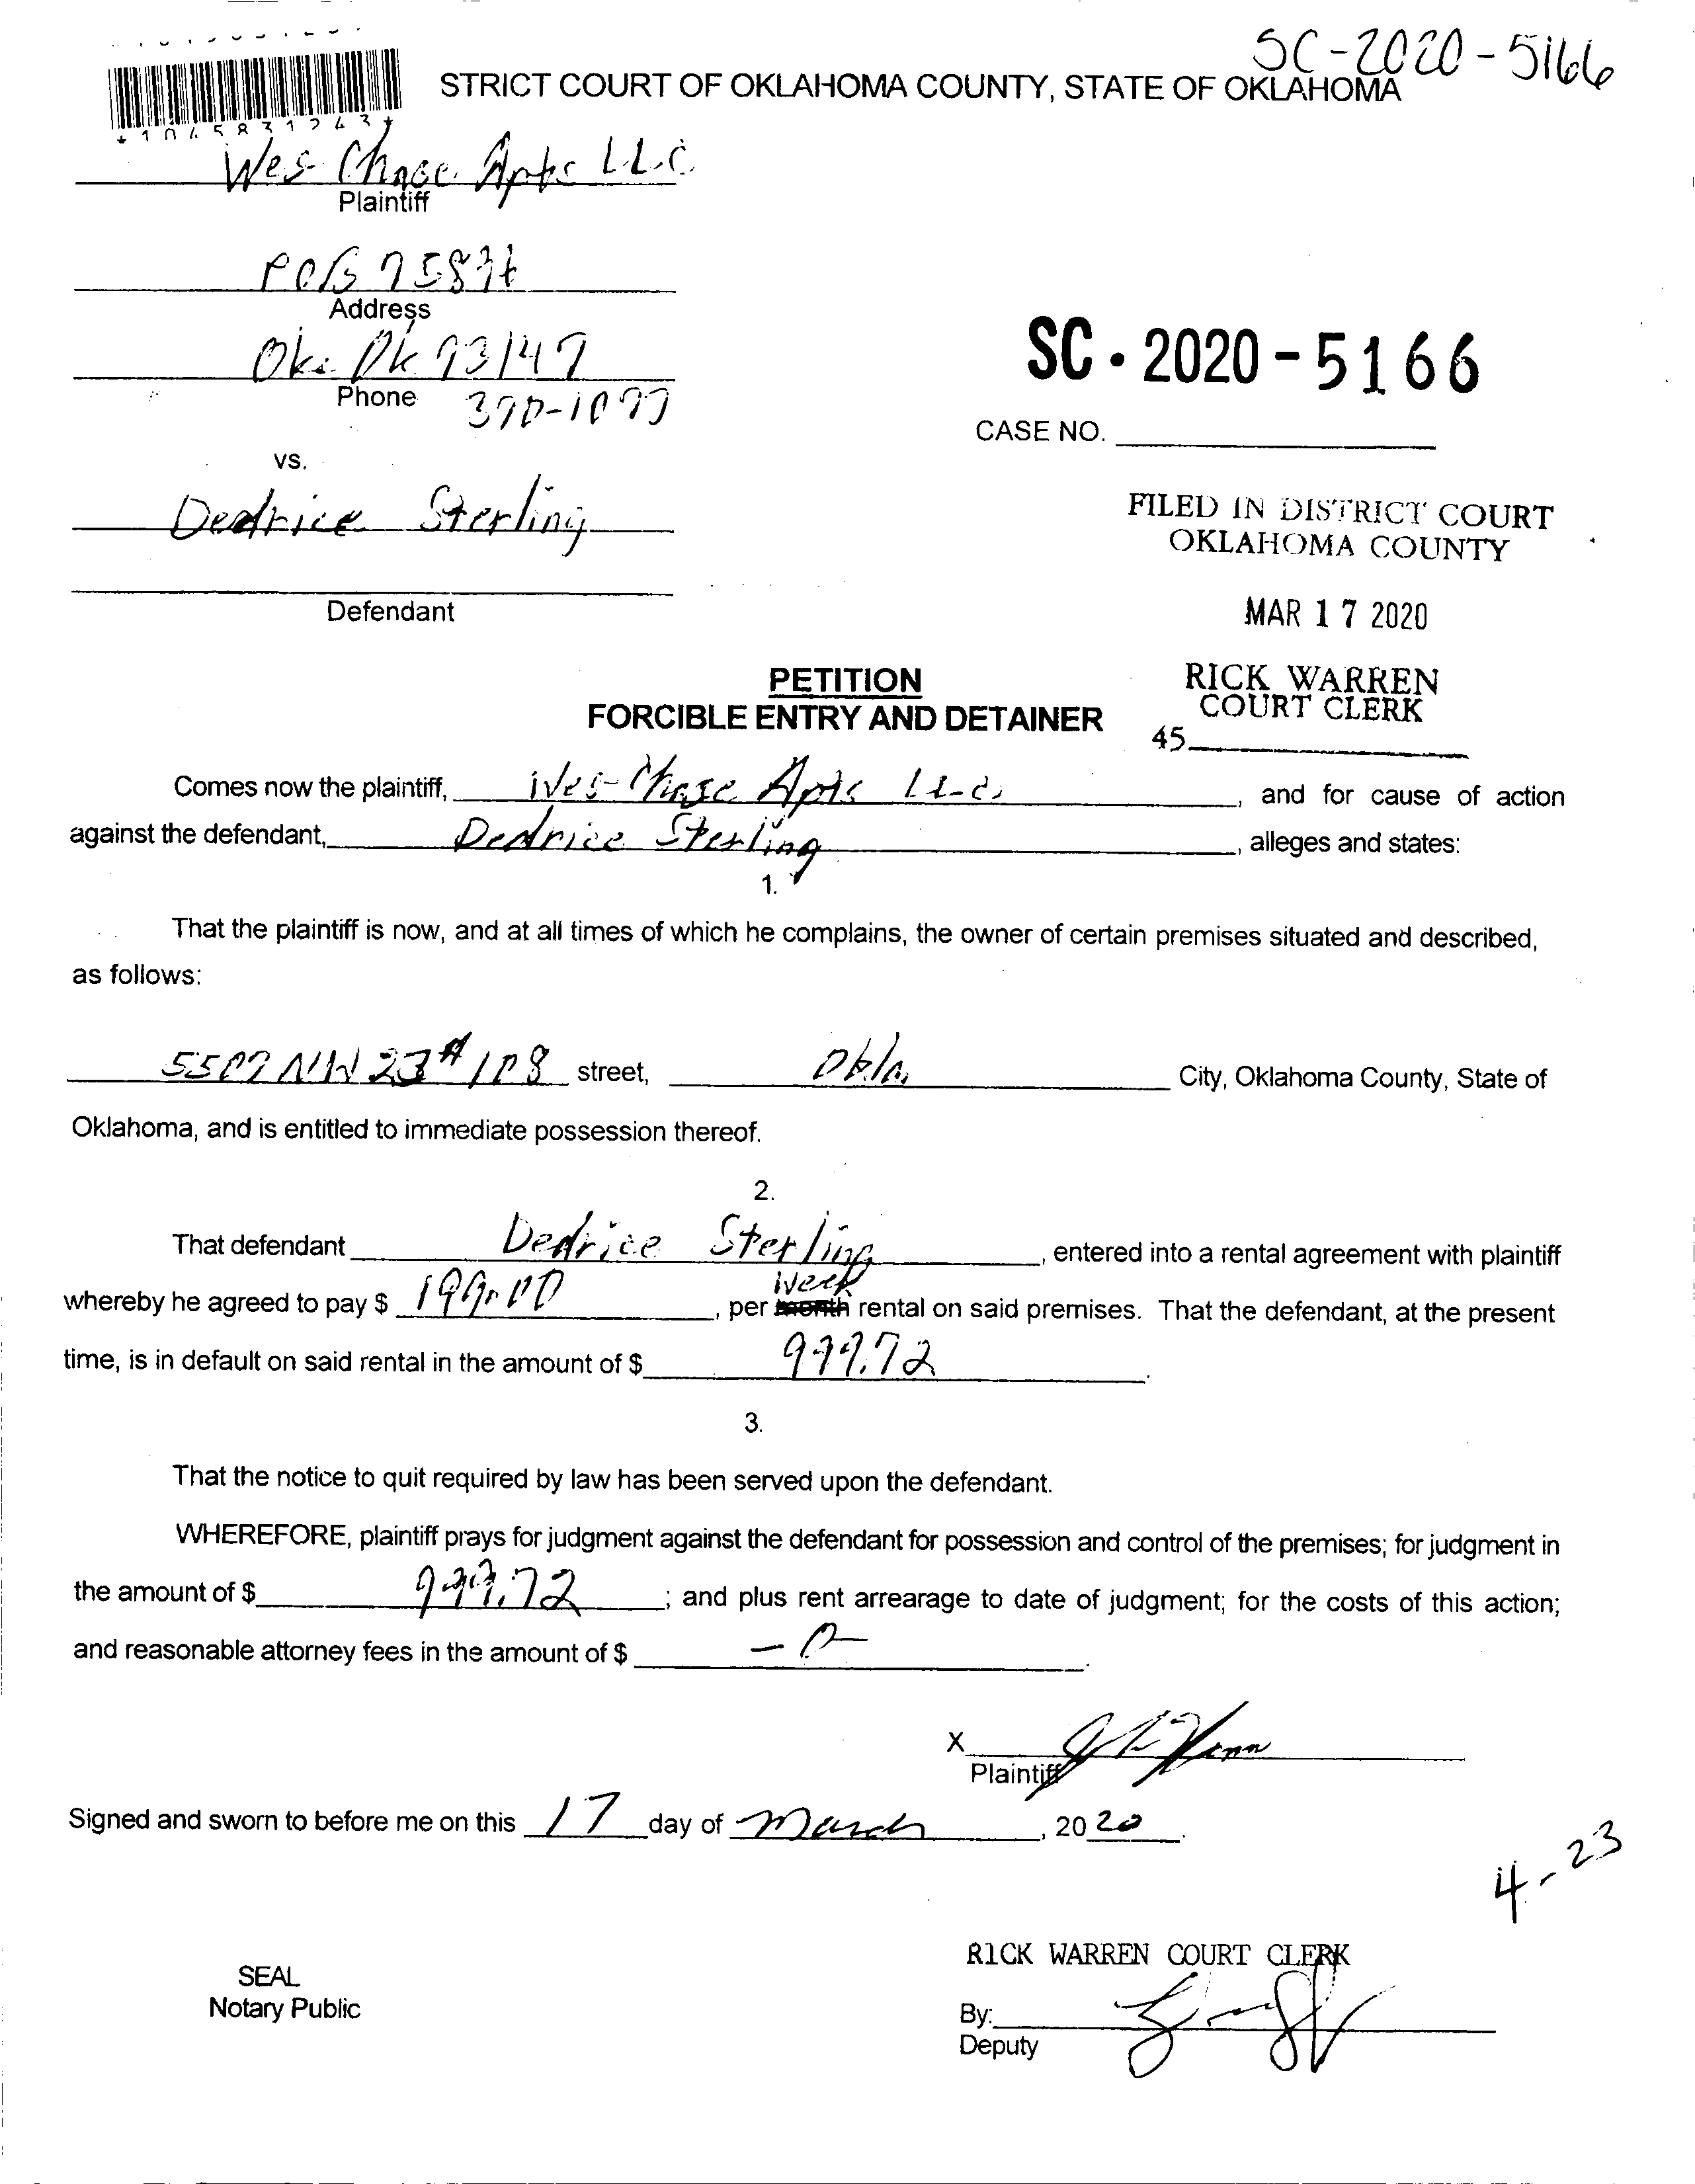 SC-2020-5166
STRICT COURT OF OKLAHOMA COUNTY, STATE OF OKLAHOMA
*1045831243*
Wes Chase Apts LLC
Plaintiff
POB
Address
Ok 73147
Phone
SC-2020-5166
CASE NO.
vs.
Dedrice Sterling
FILED IN DISTRICT COURT
OKLAHOMA COUNTY
Defendant
MAR 17 2020
PETITION
FORCIBLE ENTRY AND DETAINER
RICK WARREN
COURT CLERK
45
Comes now the plaintiff, Wes-Chase Apts LLC, and for cause of action
against the defendant, Dedrice Sterling, alleges and states:
1.
That the plaintiff is now, and at all times of which he complains, the owner of certain premises situated and described,
as follows:
5507 NW 23 # 108 street, Okla. City, Oklahoma County, State of
Oklahoma, and is entitled to immediate possession thereof.
2.
That defendant Dedrice Sterling, entered into a rental agreement with plaintiff
week
whereby he agreed to pay $ 199.00, per month rental on said premises. That the defendant, at the present
time, is in default on said rental in the amount of $ 999.72.
3.
That the notice to quit required by law has been served upon the defendant.
WHEREFORE, plaintiff prays for judgment against the defendant for possession and control of the premises; for judgment in
the amount of $ 999.72; and plus rent arrearage to date of judgment; for the costs of this action;
and reasonable attorney fees in the amount of $ -0-.
X
Plaintiff
Signed and sworn to before me on this 17 day of March, 2020.
4-23
RICK WARREN COURT CLERK
SEAL
Notary Public
By:
Deputy